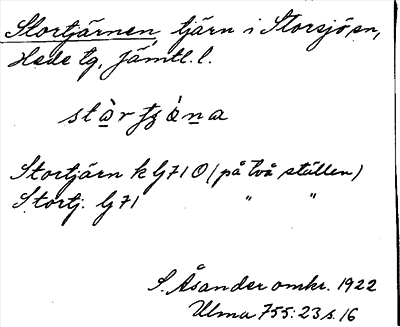 Stortjärnen tjärn i Storsjö sn,
Hede tg, Jämtl. l.
Stortjärn k G71 O (på två ställen)
Stortj. G71 " "
S. Åsander omkr. 1922
Ulma 755:23 s. 16